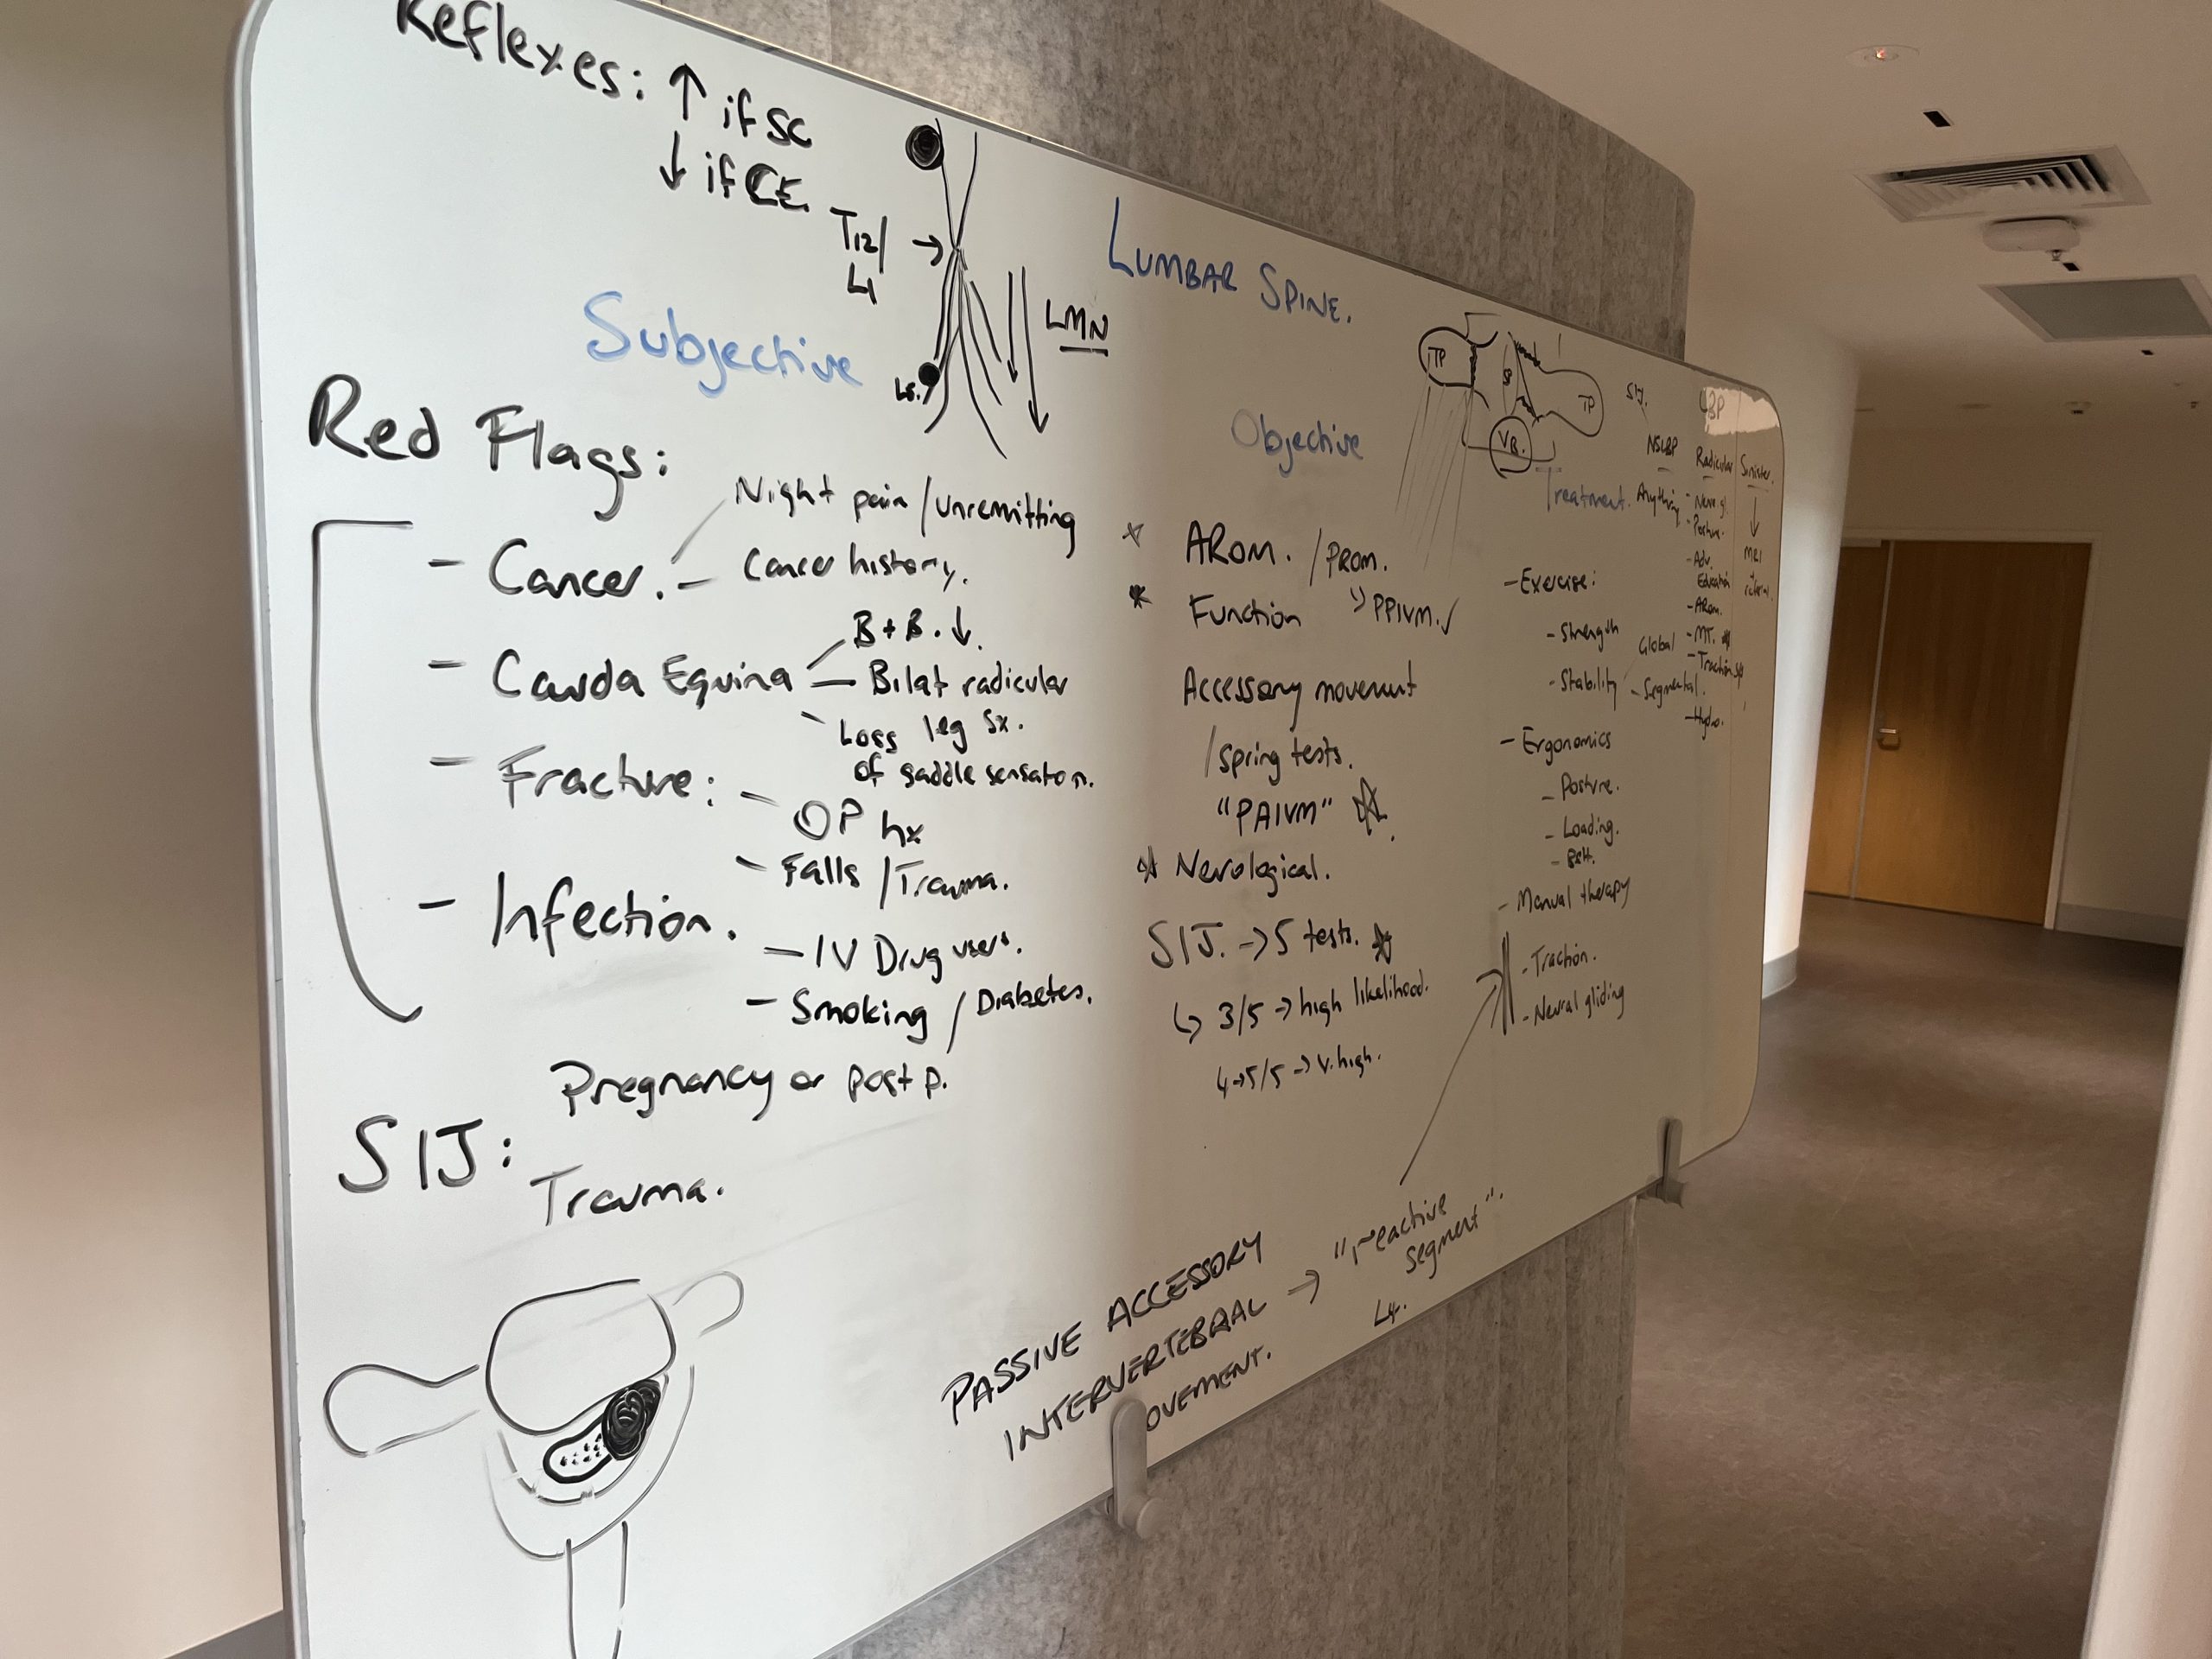 Reflexes: ↑ if SC
↓ if CE.
T12/
L1
LMN
L5.
LUMBAR SPINE.
Subjective
Red Flags:
- Cancer.
Night pain / unremitting
- Cancer history.
- Cauda Equina
B + B. ↓.
- Bilat radicular
leg sx.
Loss
of saddle sensation.
- Fracture:
- OP hx
- Falls / Trauma.
- Infection.
- IV Drug users.
- Smoking / Diabetes.
SIJ:
Pregnancy or post p.
Trauma.
Objective
* AROM. / PROM.
* Function
PPIVM. ✓
Accessory movement
/ spring tests.
"PAIVM" ☆.
☆ Neurological.
SIJ. → 5 tests. ☆
↳ 3/5 → high likelihood.
4→5/5 → v. high.
PASSIVE ACCESSORY
INTERVERTEBRAL → "reactive
segment".
OVEMENT.
L4.
TP
SP
TP
VB.
Treatment.
- Exercise:
- Strength
- Stability
Global
- Segmental.
- Ergonomics
- Posture.
- Loading.
- Manual therapy
- Traction.
- Neural gliding
SIJ.
LBP
NSLBP
Anything
Radicular
- Posture.
- Adv.
Education
- AROM.
- MT.
- Traction
- Hydro.
Sinister.
↓
MRI
+
referral.